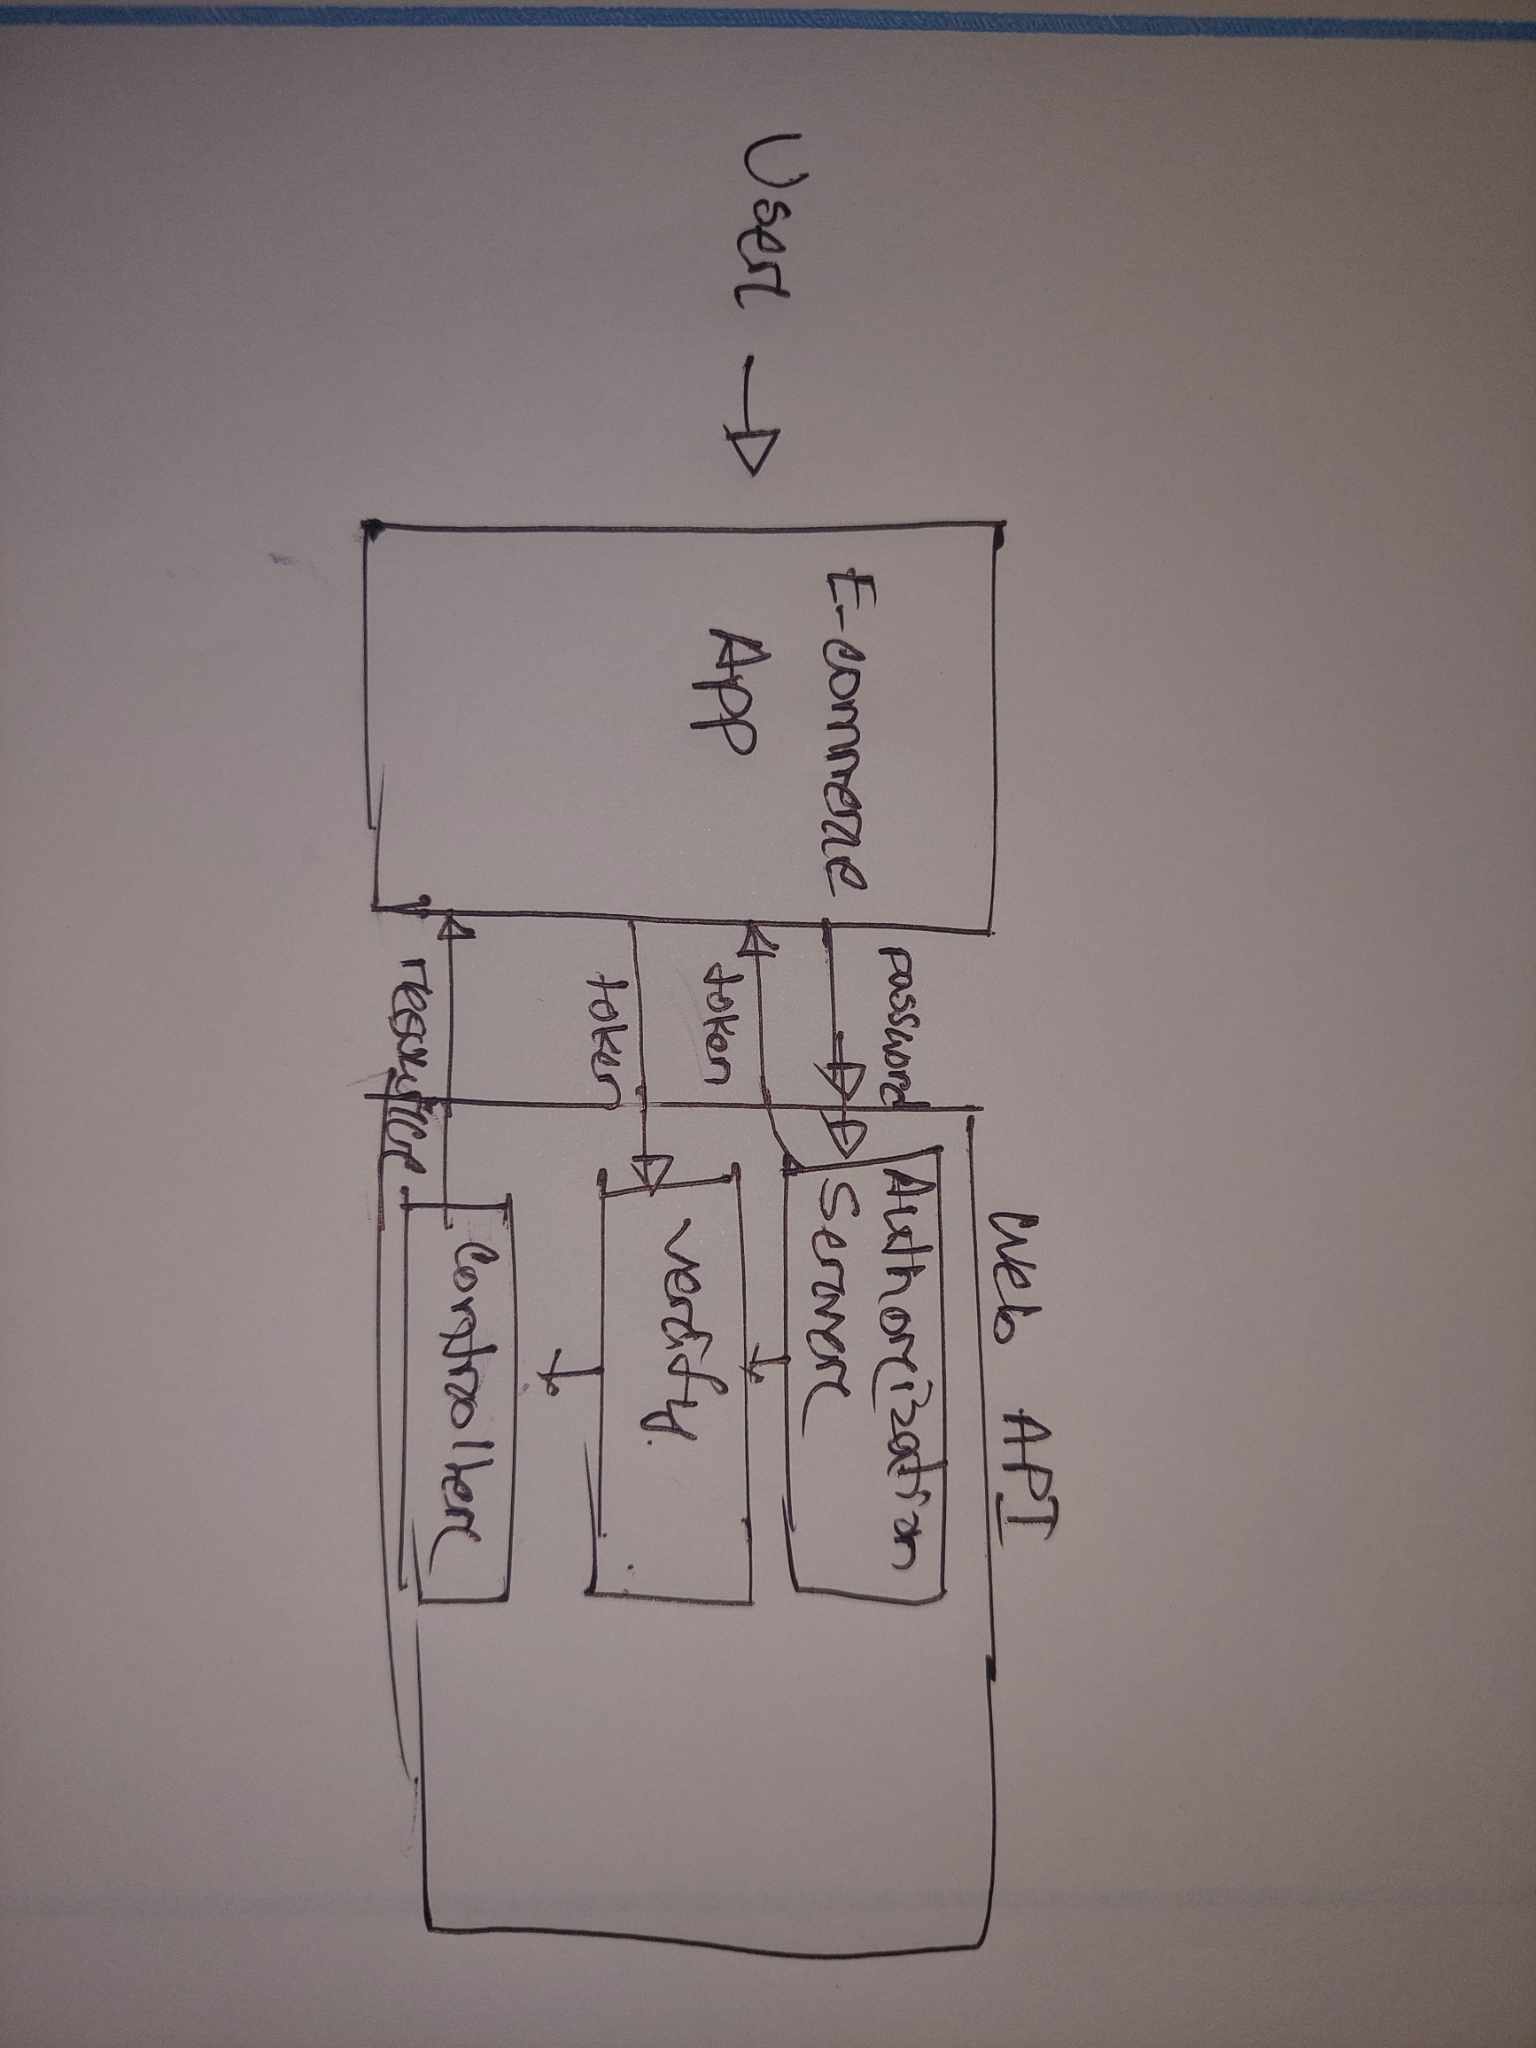 Web API
User
E-commerce
App
password
token
token
resource
Authorization
Server
verify.
Controller